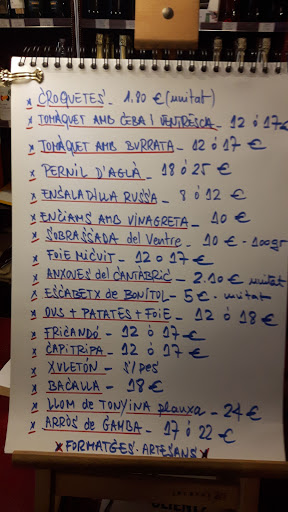 x CROQUETES - 1.80 € (unitat)
x TOMÀQUET AMB CEBA I VENTRESCA - 12 ó 17 €
x TOMÀQUET AMB BURRATA - 12 ó 17 €
x PERNIL D'AGLÀ - 18 ó 25 €
x ENSALADILLA RUSSA - 8 ó 12 €
x ENCIAMS AMB VINAGRETA - 10 €
x SOBRASSADA del Ventre - 10 € - 100gr
x FOIE MICUIT - 12 o 17 €
x ANXOVES del CANTÀBRIC - 2.10 € unitat
x ESCABETX de BONÍTOL - 5 € - unitat
x OUS + PATATES + FOIE - 12 ó 18 €
x FRICANDÓ - 12 ó 17 €
x CAPITRIPA - 12 ó 17 €
x XULETÓN - S/pes
x BACALLA - 18 €
x LLOM de TONYINA planxa - 24 €
x ARRÒS de GAMBA - 17 ó 22 €
x FORMATGES ARTESANS x